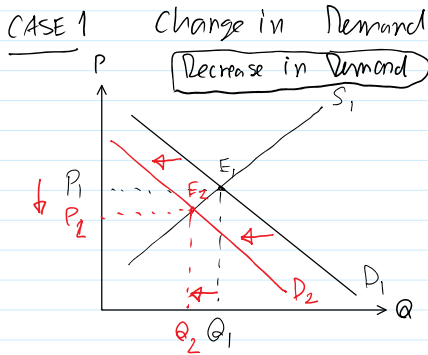 CASE 1 Change in Demand
Decrease in Demand
P
S1
E1
P1
E2
P2
D2
D1
Q2 Q1
Q